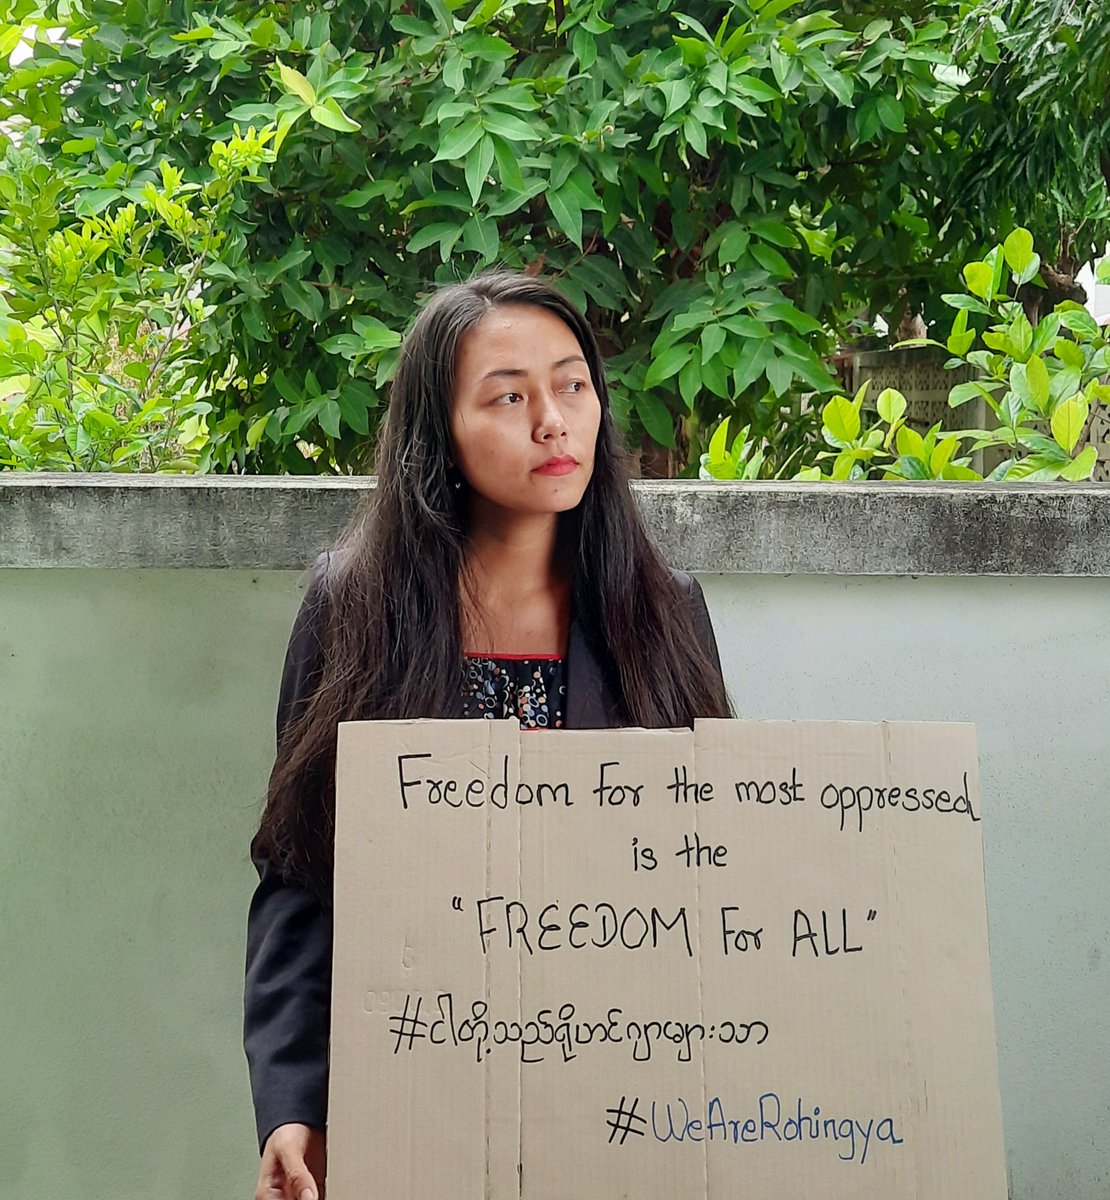 Freedom for the most oppressed
is the
"FREEDOM For ALL"
#ငါတို့သည်ရိုဟင်ဂျာများသာ
#WeAreRohingya